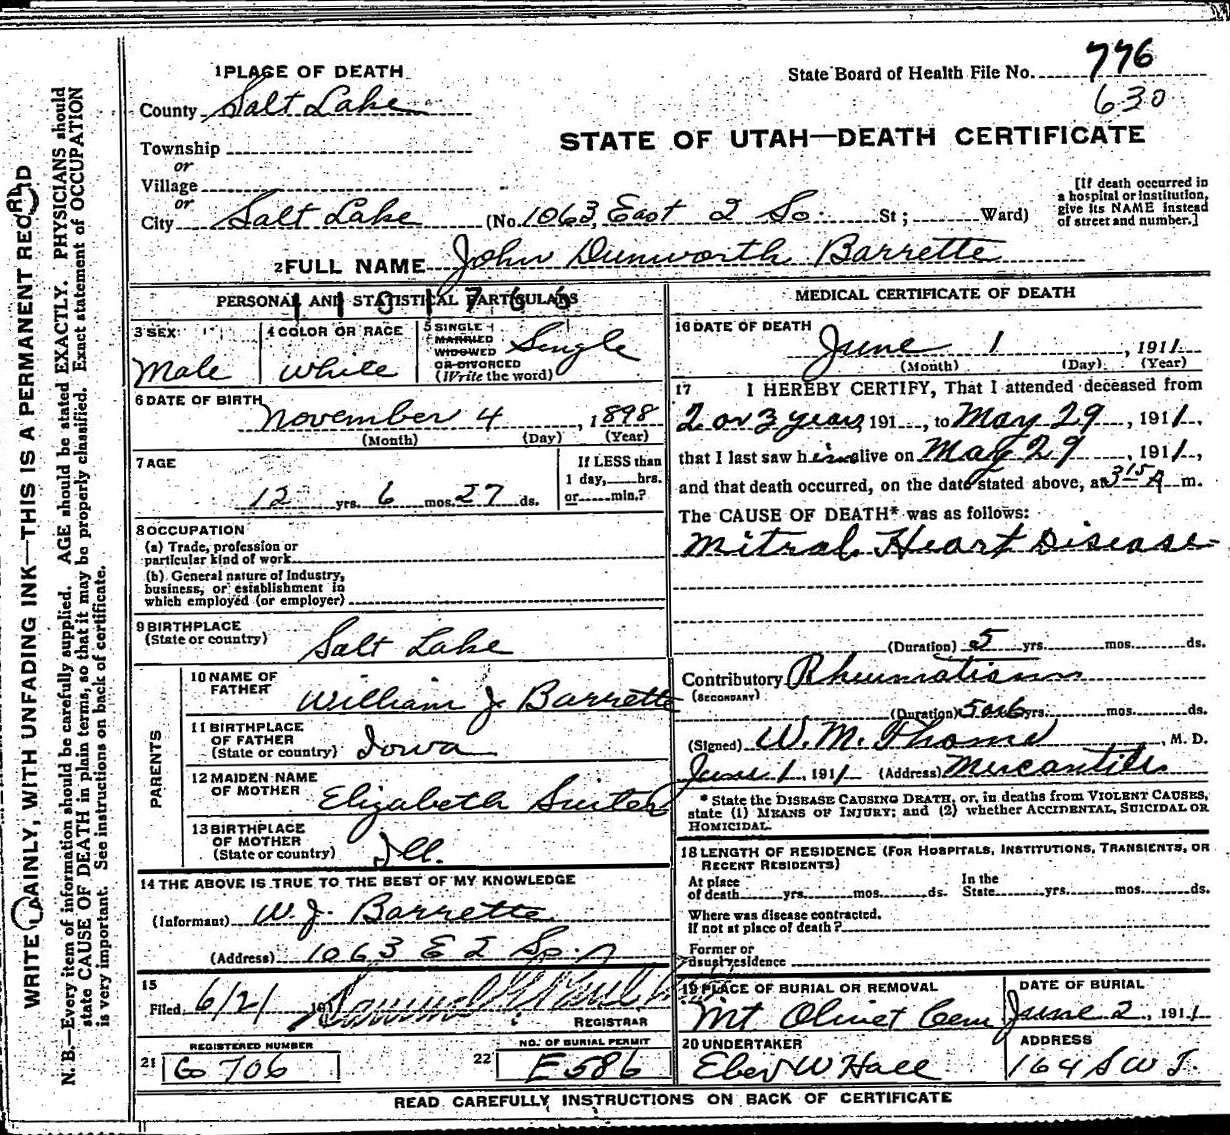 1 PLACE OF DEATH
State Board of Health File No. 776
County Salt Lake
630
STATE OF UTAH—DEATH CERTIFICATE
Township
or
Village
or
City Salt Lake (No. 1063 East 2 So. St; Ward)
[If death occurred in
a hospital or institution,
give its NAME instead
of street and number.]
2 FULL NAME John Dunworth Barrette
PERSONAL AND STATISTICAL PARTICULARS
3 SEX
Male
4 COLOR OR RACE
White
5 SINGLE
MARRIED
WIDOWED
OR DIVORCED
(Write the word)
Single
6 DATE OF BIRTH
November 4, 1898
(Month) (Day) (Year)
7 AGE
12 yrs. 6 mos. 27 ds.
If LESS than
1 day, hrs.
or min.?
8 OCCUPATION
(a) Trade, profession or
particular kind of work
(b) General nature of Industry,
business, or establishment in
which employed (or employer)
9 BIRTHPLACE
(State or country) Salt Lake
PARENTS
10 NAME OF
FATHER William J. Barrette
11 BIRTHPLACE
OF FATHER
(State or country) Iowa
12 MAIDEN NAME
OF MOTHER Elizabeth
13 BIRTHPLACE
OF MOTHER
(State or country) Ill.
14 THE ABOVE IS TRUE TO THE BEST OF MY KNOWLEDGE
(Informant) W. J. Barrette
(Address) 1063 E 2 So.
15
Filed 6/2/ 191
REGISTRAR
REGISTERED NUMBER
21 Co 706
NO. OF BURIAL PERMIT
22 E586
MEDICAL CERTIFICATE OF DEATH
16 DATE OF DEATH
June 1, 1911
(Month) (Day) (Year)
17 I HEREBY CERTIFY, That I attended deceased from
2 or 3 years, 191 , to May 29, 1911,
that I last saw him alive on May 29, 1911,
and that death occurred, on the date stated above, at 3 15 A m.
The CAUSE OF DEATH* was as follows:
Mitral Heart Disease
(Duration) 5 yrs. mos. ds.
Contributory Rheumatism
(SECONDARY)
(Duration) 5 or 6 yrs. mos. ds.
(Signed) W. M. , M. D.
June 1, 1911 (Address) Mercantile
* State the DISEASE CAUSING DEATH, or, in deaths from VIOLENT CAUSES,
state (1) MEANS OF INJURY; and (2) whether ACCIDENTAL, SUICIDAL OR
HOMICIDAL.
18 LENGTH OF RESIDENCE (FOR HOSPITALS, INSTITUTIONS, TRANSIENTS, OR
RECENT RESIDENTS)
At place
of death yrs. mos. ds.
In the
State yrs. mos. ds.
Where was disease contracted.
If not at place of death?
Former or
usual residence
19 PLACE OF BURIAL OR REMOVAL
Mt Olivet Cem
DATE OF BURIAL
June 2, 1911
20 UNDERTAKER
Eber W Hall
ADDRESS
164 S W T.
READ CAREFULLY INSTRUCTIONS ON BACK OF CERTIFICATE
WRITE PLAINLY, WITH UNFADING INK—THIS IS A PERMANENT RECORD
N. B.—Every item of information should be carefully supplied. AGE should be stated EXACTLY. PHYSICIANS should
state CAUSE OF DEATH in plain terms, so that it may be properly classified. Exact statement of OCCUPATION
is very important. See instructions on back of certificate.